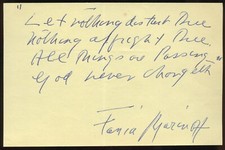 "Let nothing disturb thee
Nothing affright thee
All things are passing
God never changeth"
Fania Marinoff